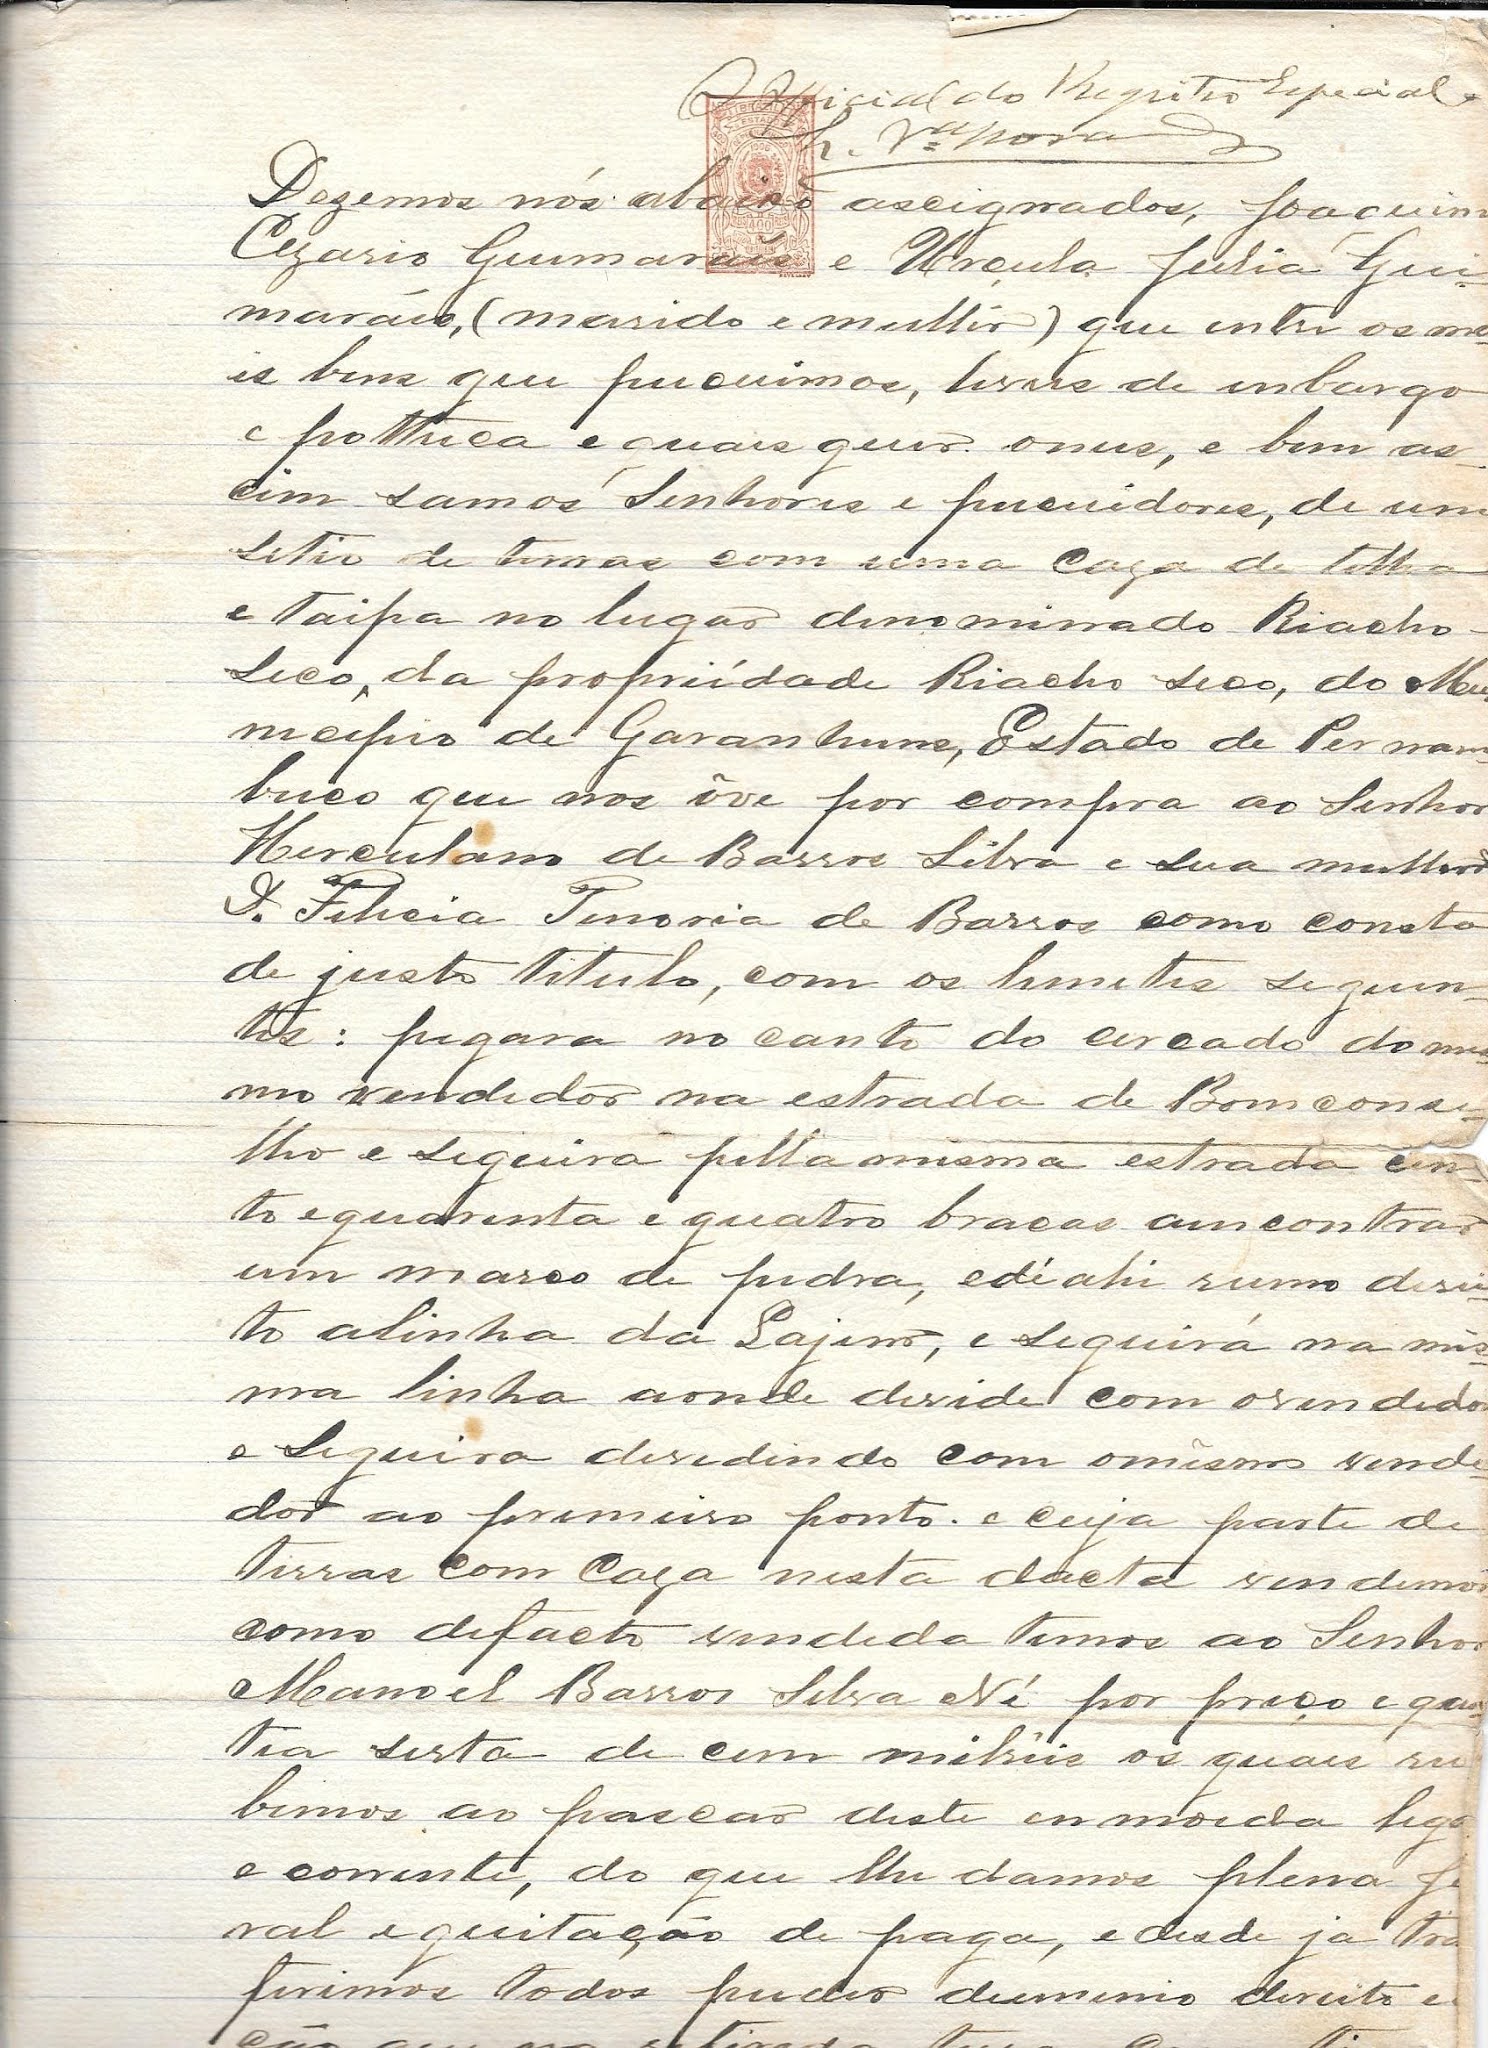 Official do Registro Especial
Dezemos nós abaixo ascignados, Joaquim
Cezario Gumarãis e Urçula Julia Gui-
marãis, (marido e mulhir) que entri os ma-
is bens que pucuimos, livris de inbargo
e potteca e quais quir onus, e bem as-
cim samos Senhoris e pucuidoris, de um
sitio de terras com uma Caza de telha
e taipa no lugar dinominado Riacho-
seco, da propriédade Riacho seco, do Mu-
nicipio de Garanhuns, Estado de Pernam-
buco que nos ôve por compra ao Senhor
Herculano de Barros Silva e sua mulher
D. Filicia Tinoria de Barros como consta
de justo titulo, com os limitis siguin-
tis: pigara no canto do circado do mis-
mo vendedor na estrada de Bomconsi-
lho e siguirá pella misma estrada cin-
to e quarinta e quatro bracas aincontrar
um marco de pidra, e dí ahi rumo diri-
to alinha da Lajiro, e siguirá na mis-
ma linha aonde divide com o vindedor
e siguira dividindo com o mismo vinde-
dor ao primeiro ponto. e cuja parte de
tirras com Caza nista dacta vindimos
como difacto vindida timos ao Senhor
Manoel Barros Silva Né por preço e quan-
tia serta de cem milréis os quais ri
bimos ao pascar disti en moida liga
e corrinti, do que lhe damos plena ji
ral e quitação de paga, e desde ja tra
firimos todos puder duminio dirito e